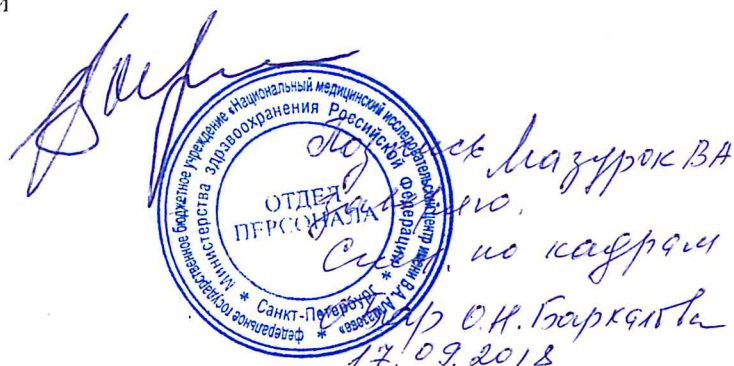 федеральное государственное бюджетное учреждение «Национальный медицинский исследовательский центр имени В.А. Алмазова» *
Министерства здравоохранения Российской Федерации *
Санкт-Петербург *
ОТДЕЛ
ПЕРСОНАЛА
Подпись Мазурок ВА
заверяю.
Спец. по кадрам
О.Н. Баркалова
17.09.2018